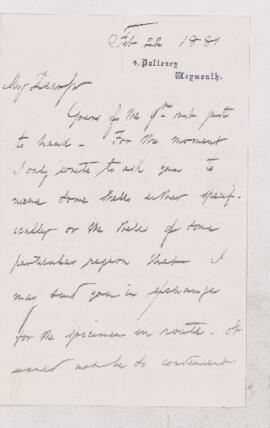 Feb 22 1881
4, Pulteney
Weymouth.
My Dear Sir
Yours of the 9th inst just
to hand. For the moment
I only write to ask you to
name some shells either specif-
ically or the shells of some
particular region that I
may send you in exchange
for the specimen en route. It
would not be so convenient